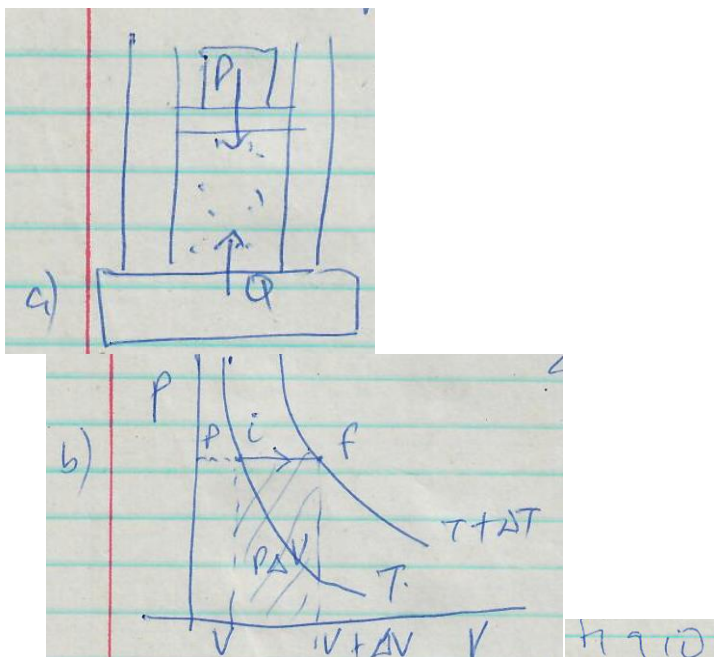 P
Q
a)
P
P i f
b)
T + ΔT
PΔV
T
V V + ΔV V